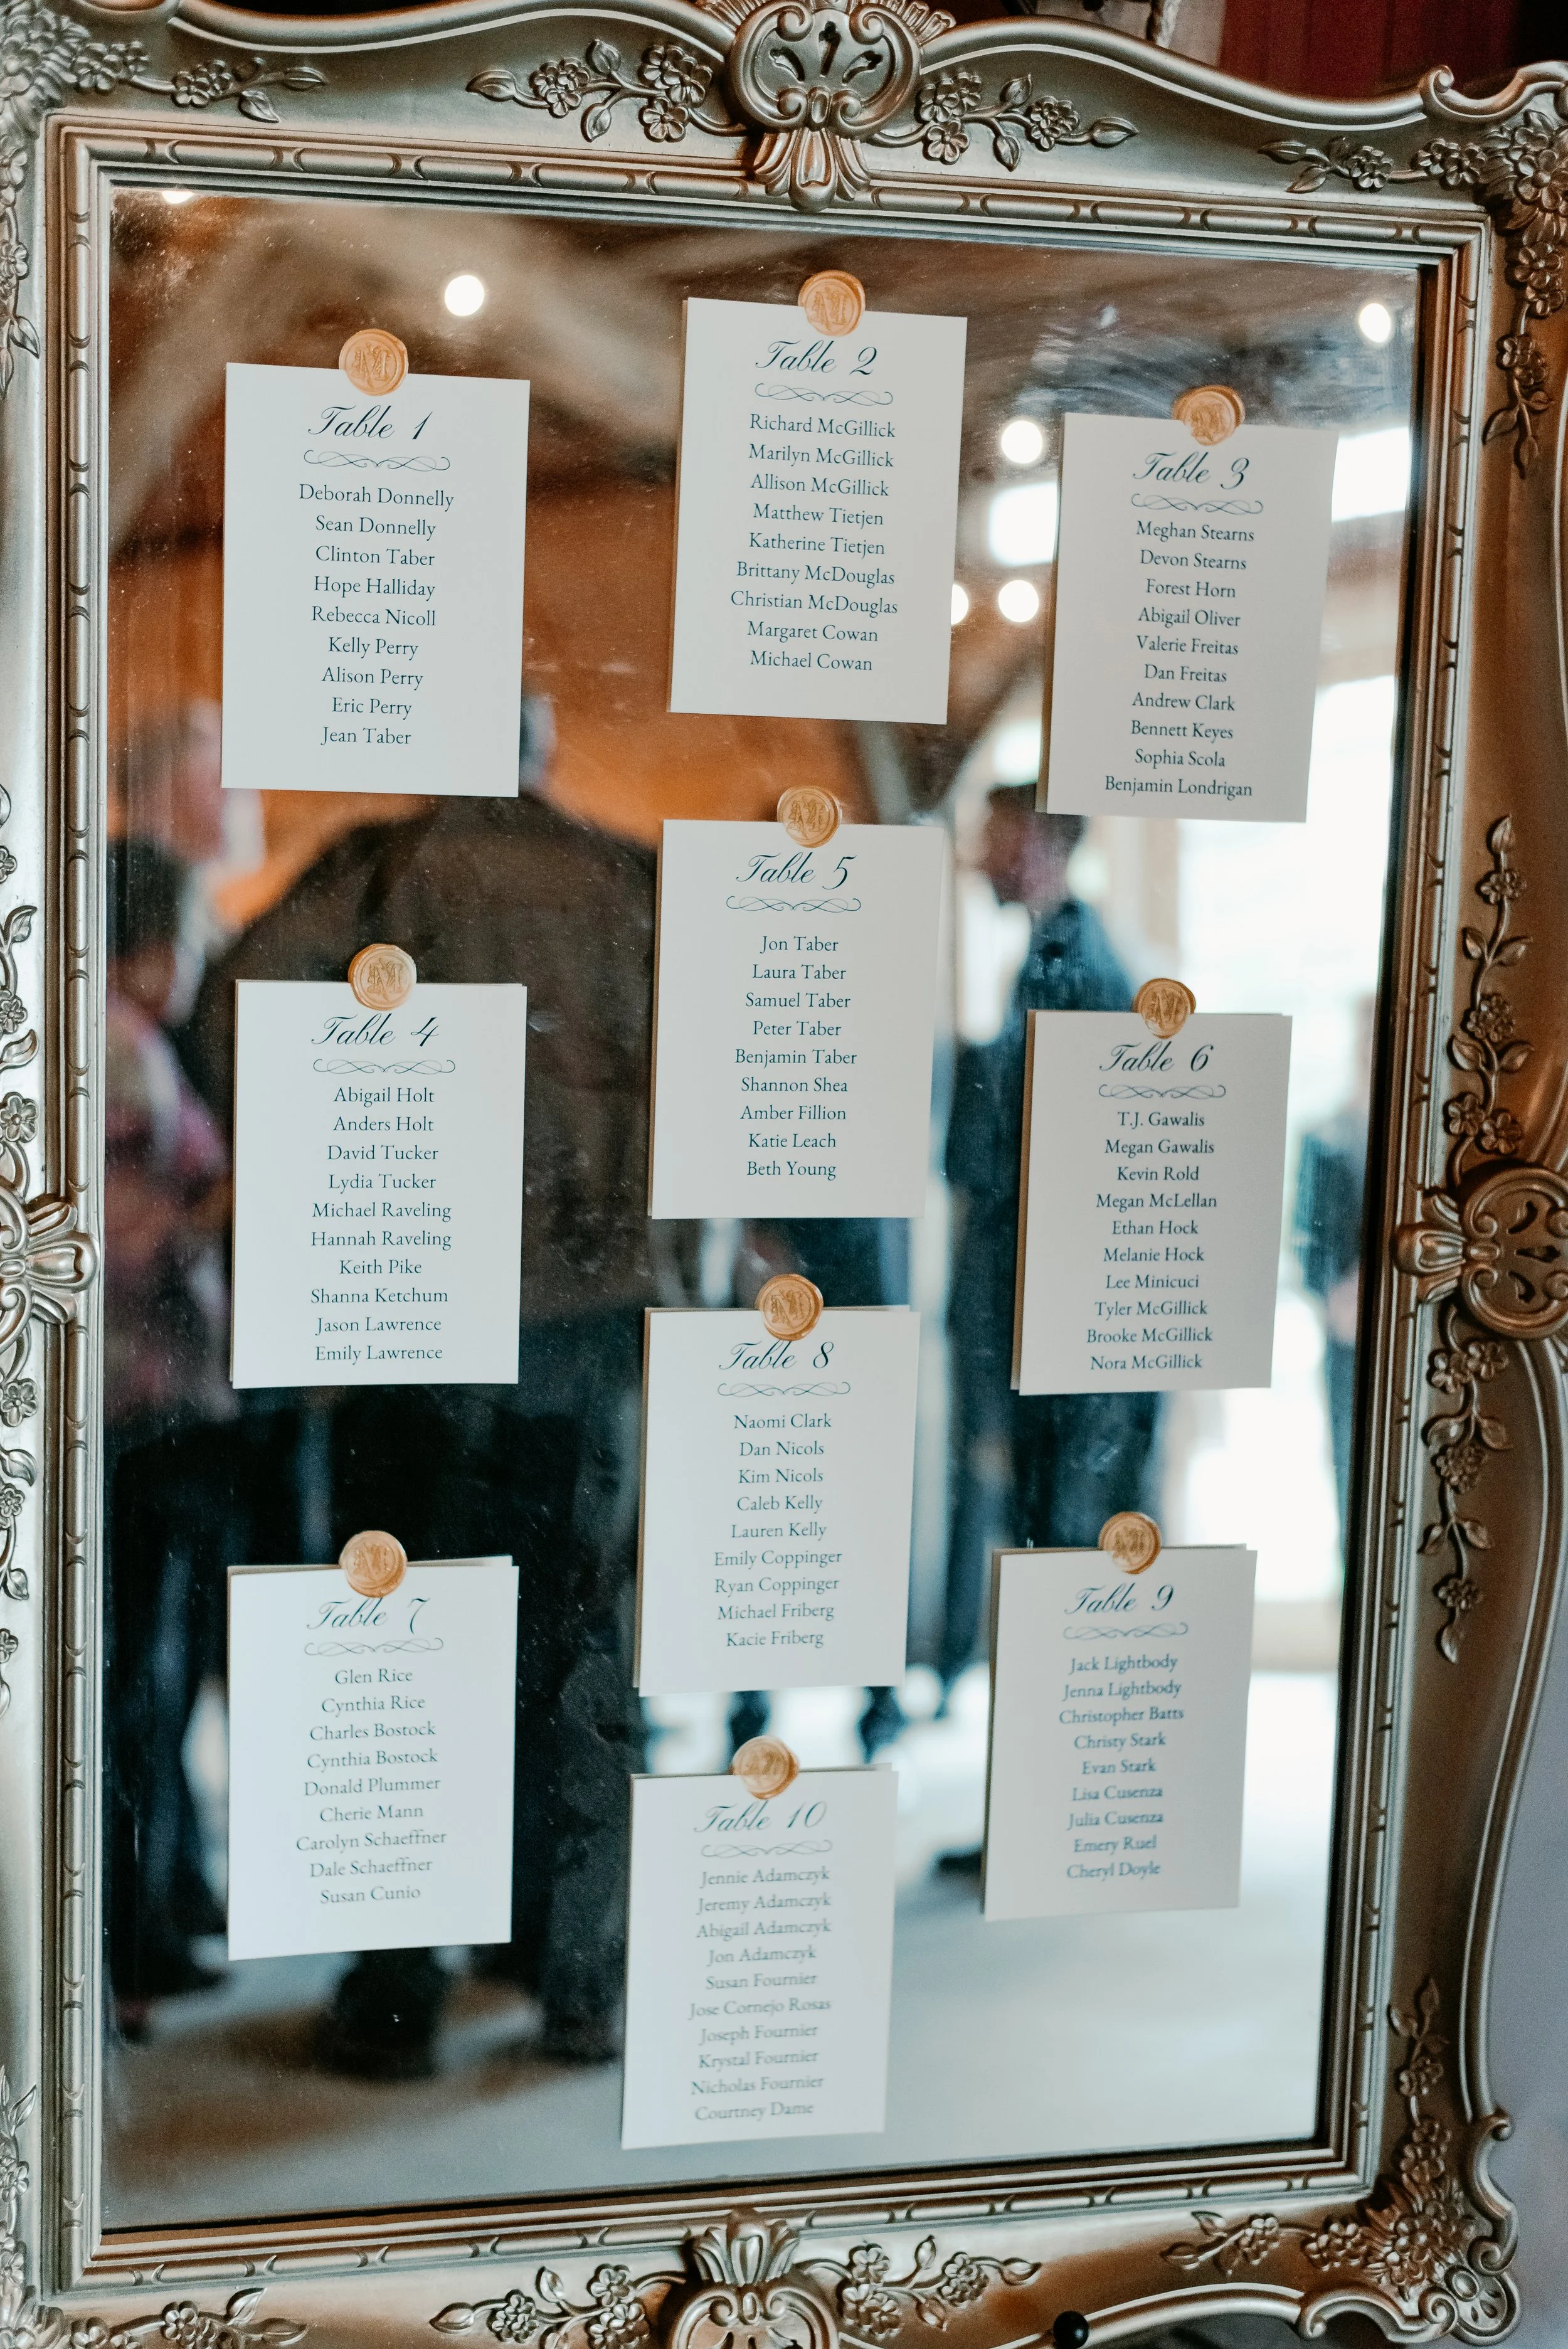 Table 1
Deborah Donnelly
Sean Donnelly
Clinton Taber
Hope Halliday
Rebecca Nicoll
Kelly Perry
Alison Perry
Eric Perry
Jean Taber
Table 2
Richard McGillick
Marilyn McGillick
Allison McGillick
Matthew Tietjen
Katherine Tietjen
Brittany McDouglas
Christian McDouglas
Margaret Cowan
Michael Cowan
Table 3
Meghan Stearns
Devon Stearns
Forest Horn
Abigail Oliver
Valerie Freitas
Dan Freitas
Andrew Clark
Bennett Keyes
Sophia Scola
Benjamin Londrigan
Table 4
Abigail Holt
Anders Holt
David Tucker
Lydia Tucker
Michael Raveling
Hannah Raveling
Keith Pike
Shanna Ketchum
Jason Lawrence
Emily Lawrence
Table 5
Jon Taber
Laura Taber
Samuel Taber
Peter Taber
Benjamin Taber
Shannon Shea
Amber Fillion
Katie Leach
Beth Young
Table 6
T.J. Gawalis
Megan Gawalis
Kevin Rold
Megan McLellan
Ethan Hock
Melanie Hock
Lee Minicuci
Tyler McGillick
Brooke McGillick
Nora McGillick
Table 7
Glen Rice
Cynthia Rice
Charles Bostock
Cynthia Bostock
Donald Plummer
Cherie Mann
Carolyn Schaeffner
Dale Schaeffner
Susan Cunio
Table 8
Naomi Clark
Dan Nicols
Kim Nicols
Caleb Kelly
Lauren Kelly
Emily Coppinger
Ryan Coppinger
Michael Friberg
Kacie Friberg
Table 9
Jack Lightbody
Jenna Lightbody
Christopher Batts
Christy Stark
Evan Stark
Lisa Cusenza
Julia Cusenza
Emery Ruel
Cheryl Doyle
Table 10
Jennie Adamczyk
Jeremy Adamczyk
Abigail Adamczyk
Jon Adamczyk
Susan Fournier
Jose Cornejo Rosas
Joseph Fournier
Krystal Fournier
Nicholas Fournier
Courtney Dame